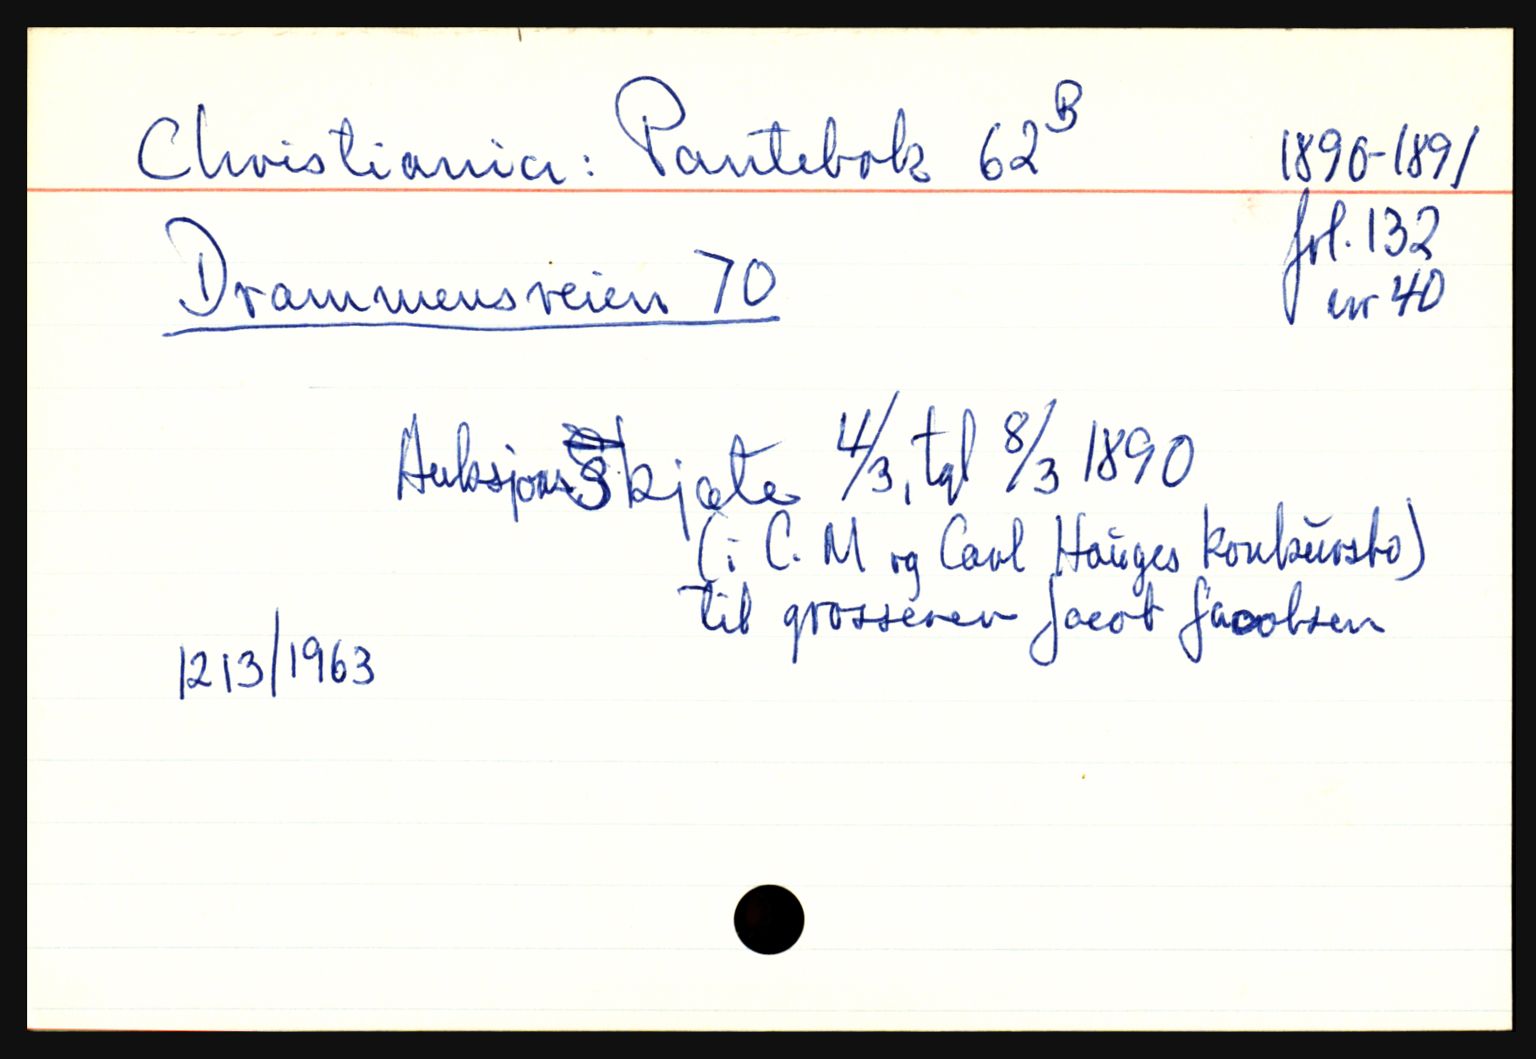 Christiania: Pantebok 62B 1890-1891
fol. 132
Drammensveien 70
nr 40
Auksjonsskjøte 4/3, tgl 8/3 1890
(i C. M og Carl Hauges konkursbo)
til grosserer Jacob Jacobsen
1213/1963